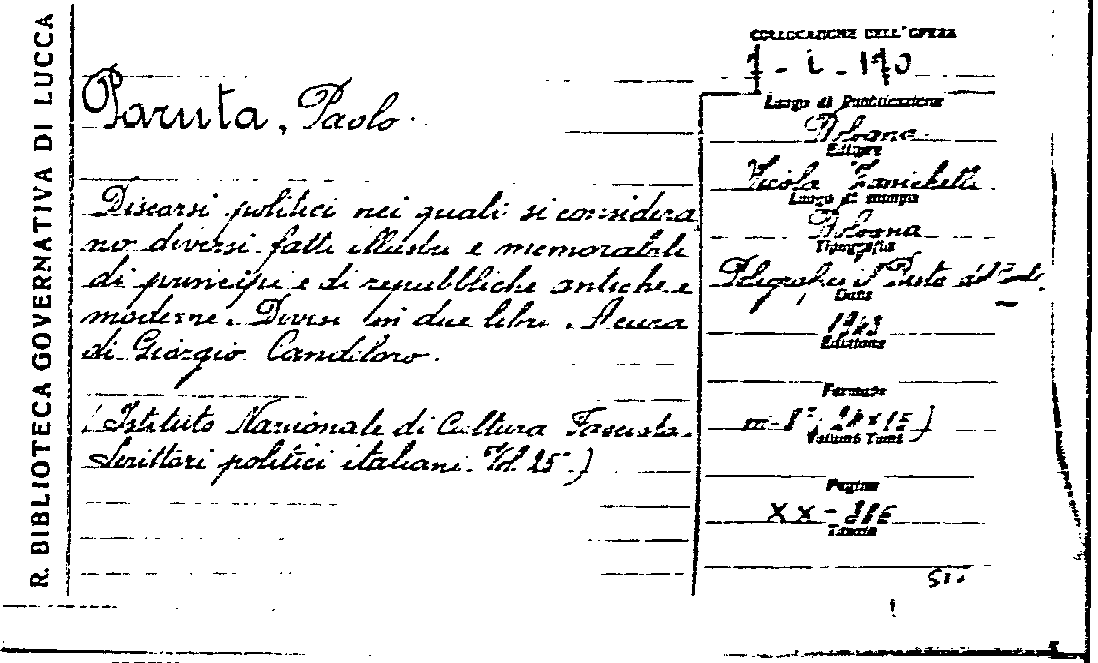 R. BIBLIOTECA GOVERNATIVA DI LUCCA
Paruta, Paolo.
Discorsi politici nei quali si considera
no diversi fatti illustri e memorabili
di principi e di repubbliche antiche e
moderne. Divisi in due libri. A cura
di Giorgio Candeloro.
(Istituto Nazionale di Cultura Fascista.
Scrittori politici italiani. Vol. 25.)
COLLOCAZIONE DELL'OPERA
Luogo di Pubblicazione
Bologna.
Editore
Nicola Zanichelli.
Luogo di stampa
Bologna
Tipografia
Poligrafici il Resto del
Data
1943
Edizione
Formato
Volumi Tomi
Pagine
XX -
Tavole